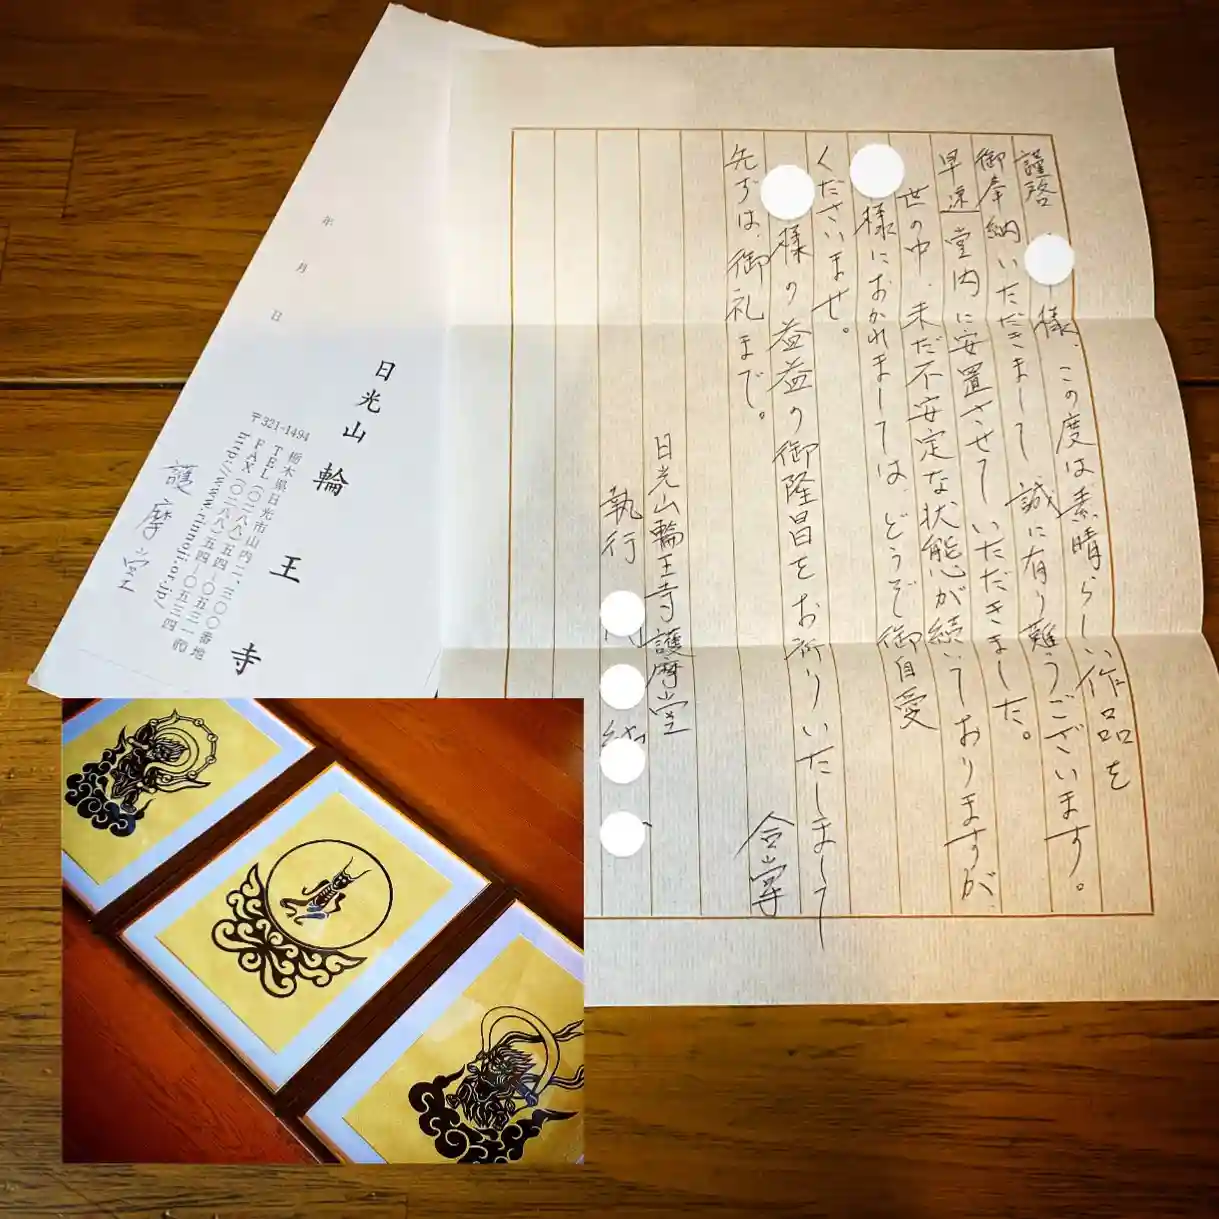 謹啓 様、この度は素晴らしい作品を
御奉納いただきまして誠に有り難うございます。
早速堂内に安置させていただきました。
世の中、未だ不安定な状態が続いておりますが、
様におかれましては、どうぞ御自愛
くださいませ。
様の益益の御隆昌をお祈りいたしまして
先ずは、御礼まで。
合掌
日光山輪王寺護摩堂
執行
年 月 日
日光山 輪 王 寺
〒321-1494 栃木県日光市山内二三〇〇番地
TEL(〇二八八)五四-〇五三一㈹
FAX(〇二八八)五四-〇五三四
http://www.rinnoji.or.jp/
護摩堂